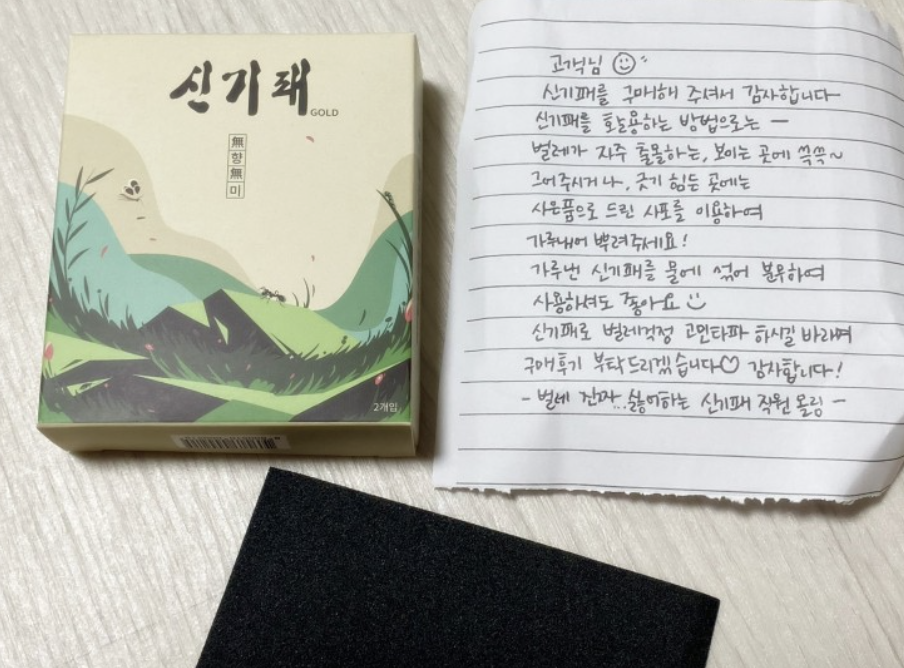 신기패
GOLD
無
향
無
미
2개입
고객님
신기패를 구매해 주셔서 감사합니다
신기패를 활용하는 방법으로는 ―
벌레가 자주 출몰하는, 보이는 곳에 쓱쓱~
그어주시거나, 긋기 힘든 곳에는
사은품으로 드린 사포를 이용하여
가루내어 뿌려주세요!
가루낸 신기패를 물에 섞어 분유하여
사용하셔도 좋아요
신기패로 벌레걱정 고민타파 하시길 바라며
구매후기 부탁드리겠습니다♡ 감사합니다!
- 벌레 진짜...싫어하는 신기패 직원 올림 -